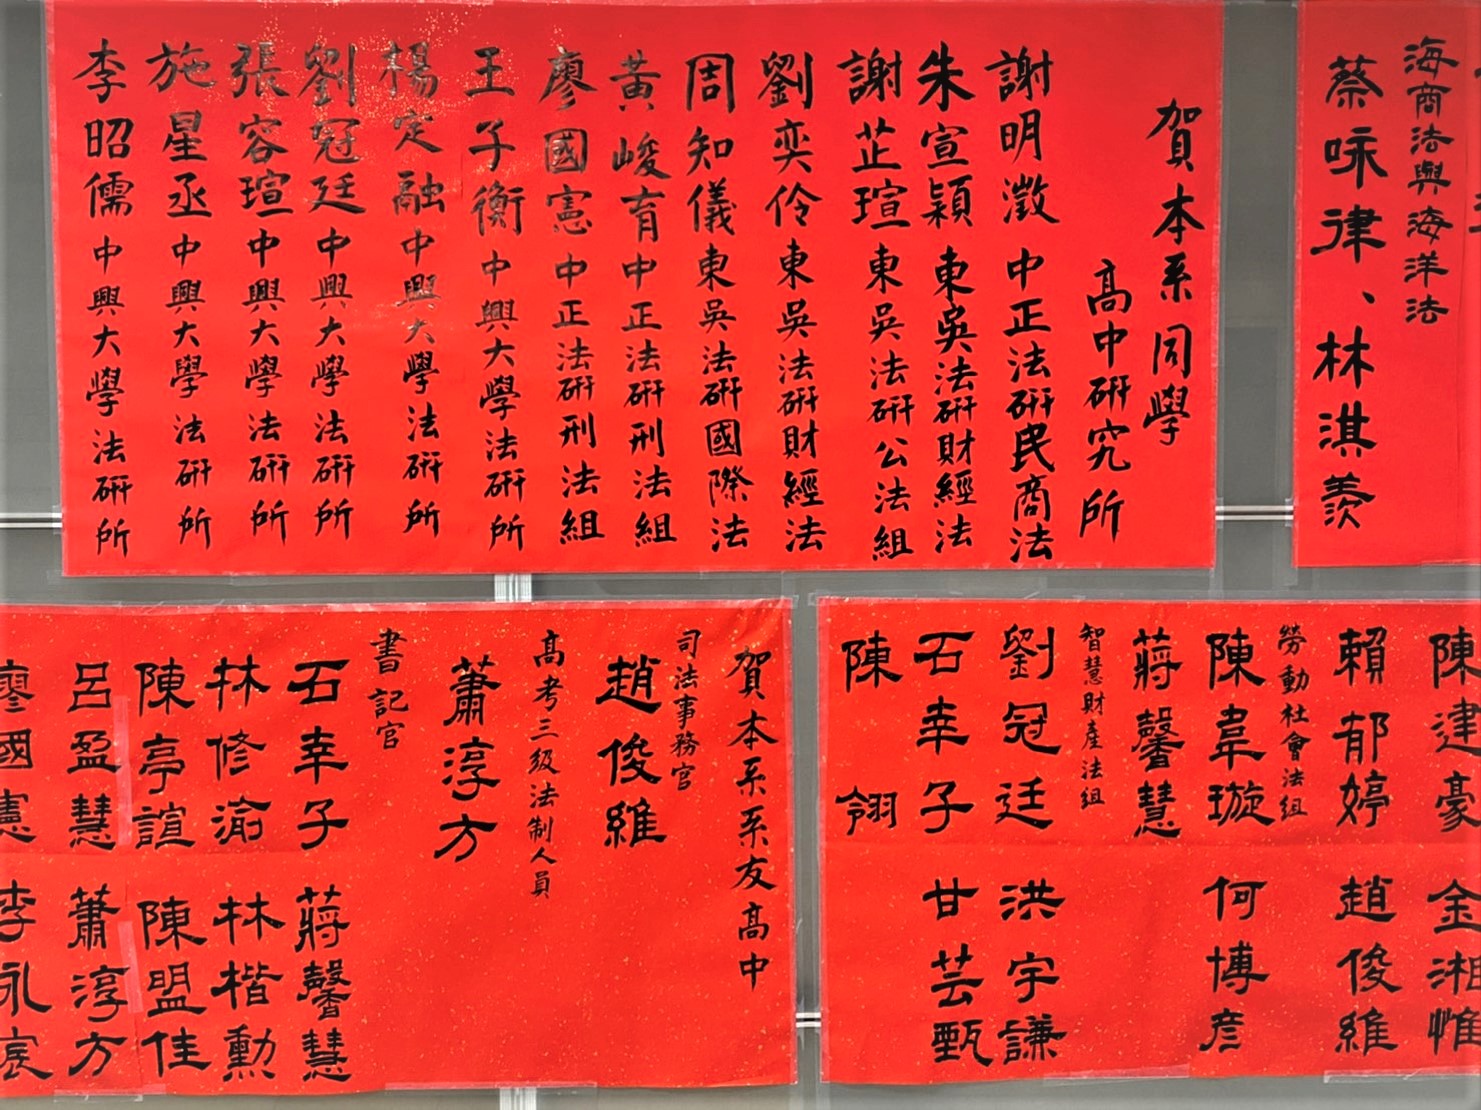 賀本系同學
高中研究所
謝明澂 中正法研民商法
朱宣穎 東吳法研財經法
謝芷瑄 東吳法研公法組
劉奕伶 東吳法研財經法
周知儀 東吳法研國際法
黃峻育 中正法研刑法組
廖國憲 中正法研刑法組
王子衡 中興大學法研所
楊定融 中興大學法研所
劉冠廷 中興大學法研所
張容瑄 中興大學法研所
施星丞 中興大學法研所
李昭儒 中興大學法研所
海商法與海洋法
蔡咏律、林淇羨
陳建豪 金湘惟
賴郁婷 趙俊維
勞動社會法組
陳韋璇 何博彥
蔣馨慧
智慧財產法組
劉冠廷 洪宇謙
石幸子 甘芸甄
陳翎
賀本系系友高中
司法事務官
趙俊維
高考三級法制人員
蕭淳方
書記官
石幸子 蔣馨慧
林修渝 林楷勳
陳亭諠 陳盟佳
呂盈慧 蕭淳方
廖國憲 李永宸